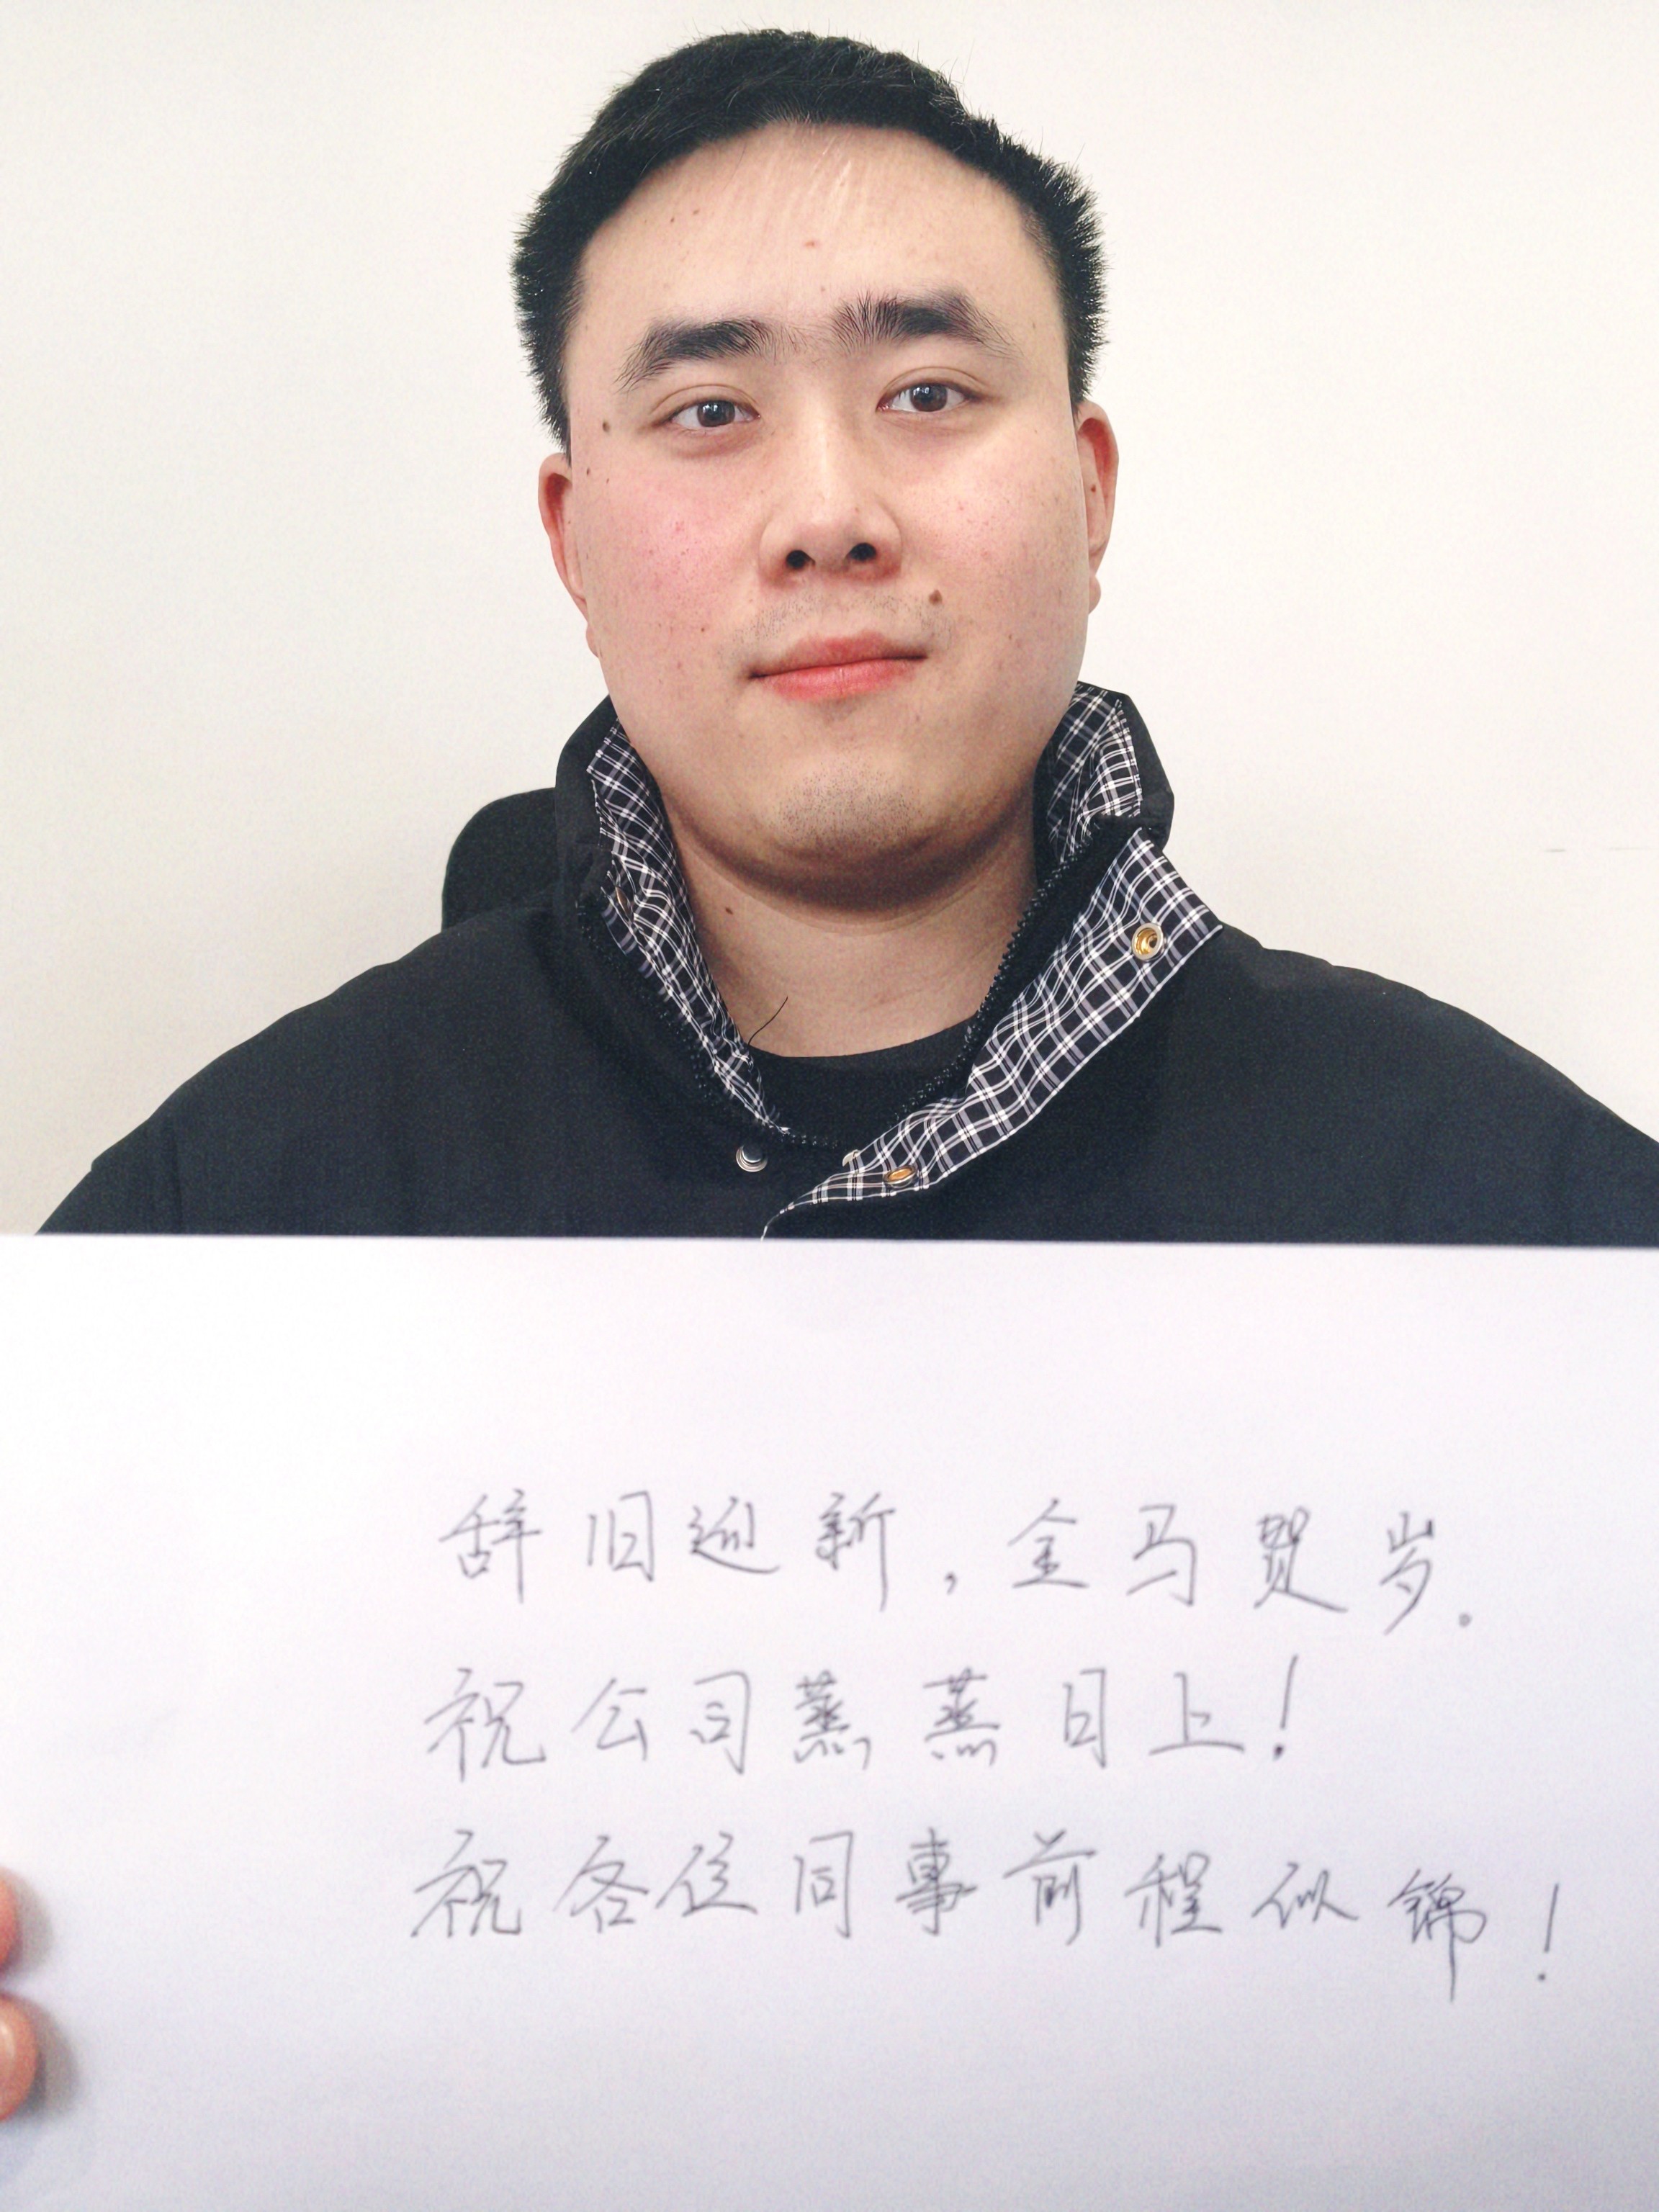 辞旧迎新，金马贺岁。
祝公司蒸蒸日上！
祝各位同事前程似锦！